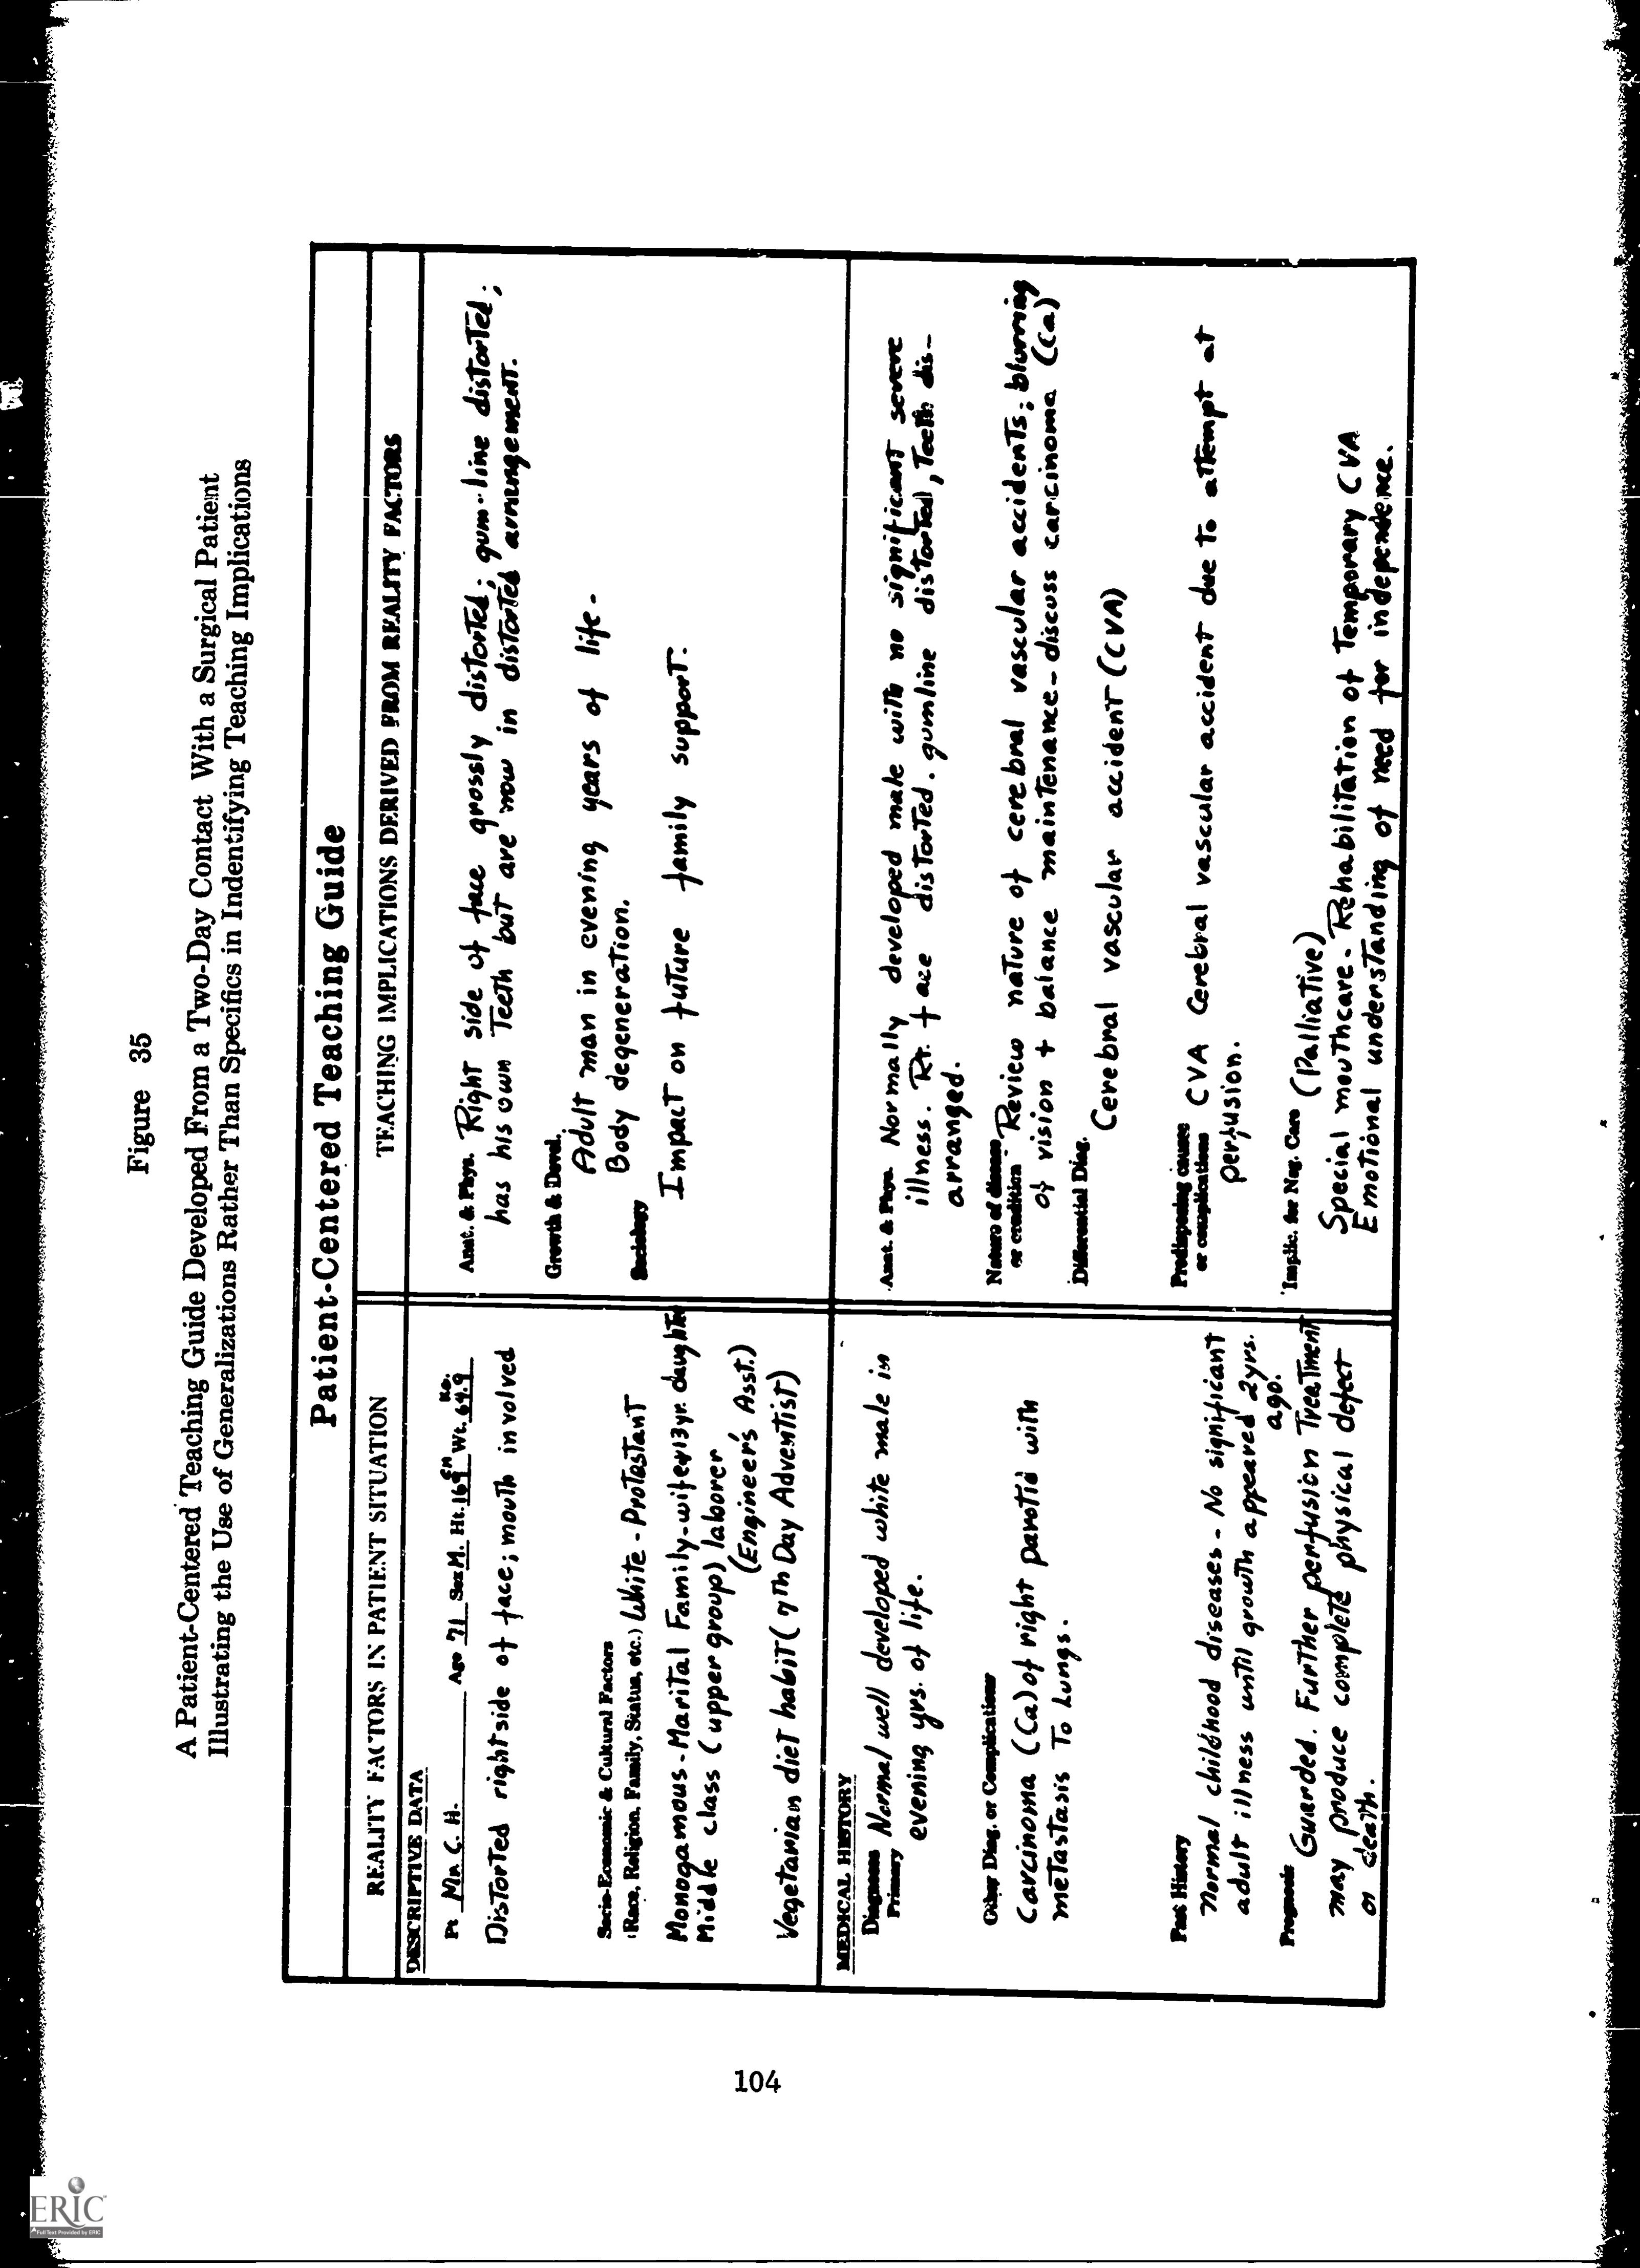 Figure 35
A Patient-Centered Teaching Guide Developed From a Two-Day Contact With a Surgical Patient
Illustrating the Use of Generalizations Rather Than Specifics in Indentifying Teaching Implications
Patient-Centered Teaching Guide
REALITY FACTORS IN PATIENT SITUATION
TEACHING IMPLICATIONS DERIVED FROM REALITY FACTORS
DESCRIPTIVE DATA
Pt Mr. C. H. Age 71 Sex M. Ht. 169 cm Wt. 64.9 Kg.
Distorted right side of face; mouth involved
Socio-Economic & Cultural Factors
(Race, Religion, Family, Status, etc.) White - Protestant
Monogamous-Marital Family-wife + 13 yr. daughter
Middle class (upper group) laborer
(Engineer's Asst.)
Vegetarian diet habit (7th Day Adventist)
Anat. & Phys. Right side of face grossly distorted; gum-line distorted;
has his own Teeth but are now in distorted arrangement.
Growth & Devel.
Adult man in evening years of life-
Body degeneration.
Sociology
Impact on future family support.
MEDICAL HISTORY
Diagnoses
Primary Normal well developed white male in
evening yrs. of life.
Other Diag. or Complications
Carcinoma (Ca) of right parotid with
metastasis To Lungs.
Past History
Normal childhood diseases - No significant
adult illness until growth appeared 2yrs.
ago.
Prognosis Guarded. Further perfusion Treatment
may produce complete physical defect
or death.
Anat. & Phys. Normally developed male with no significant severe
illness. Rt. face distorted. gumline distorted, Teeth dis-
arranged.
Nature of disease
or condition - Review nature of cerebral vascular accidents; blurring
of vision + balance maintenance - discuss carcinoma (Ca)
Differential Diag.
Cerebral vascular accident (CVA)
Predisposing causes
or complications CVA Cerebral vascular accident due to attempt at
perfusion.
Implic. for Nsg. Care (Palliative)
Special mouthcare. Rehabilitation of Temporary CVA
Emotional understanding of need for independence.
104
ERIC
Full Text Provided by ERIC